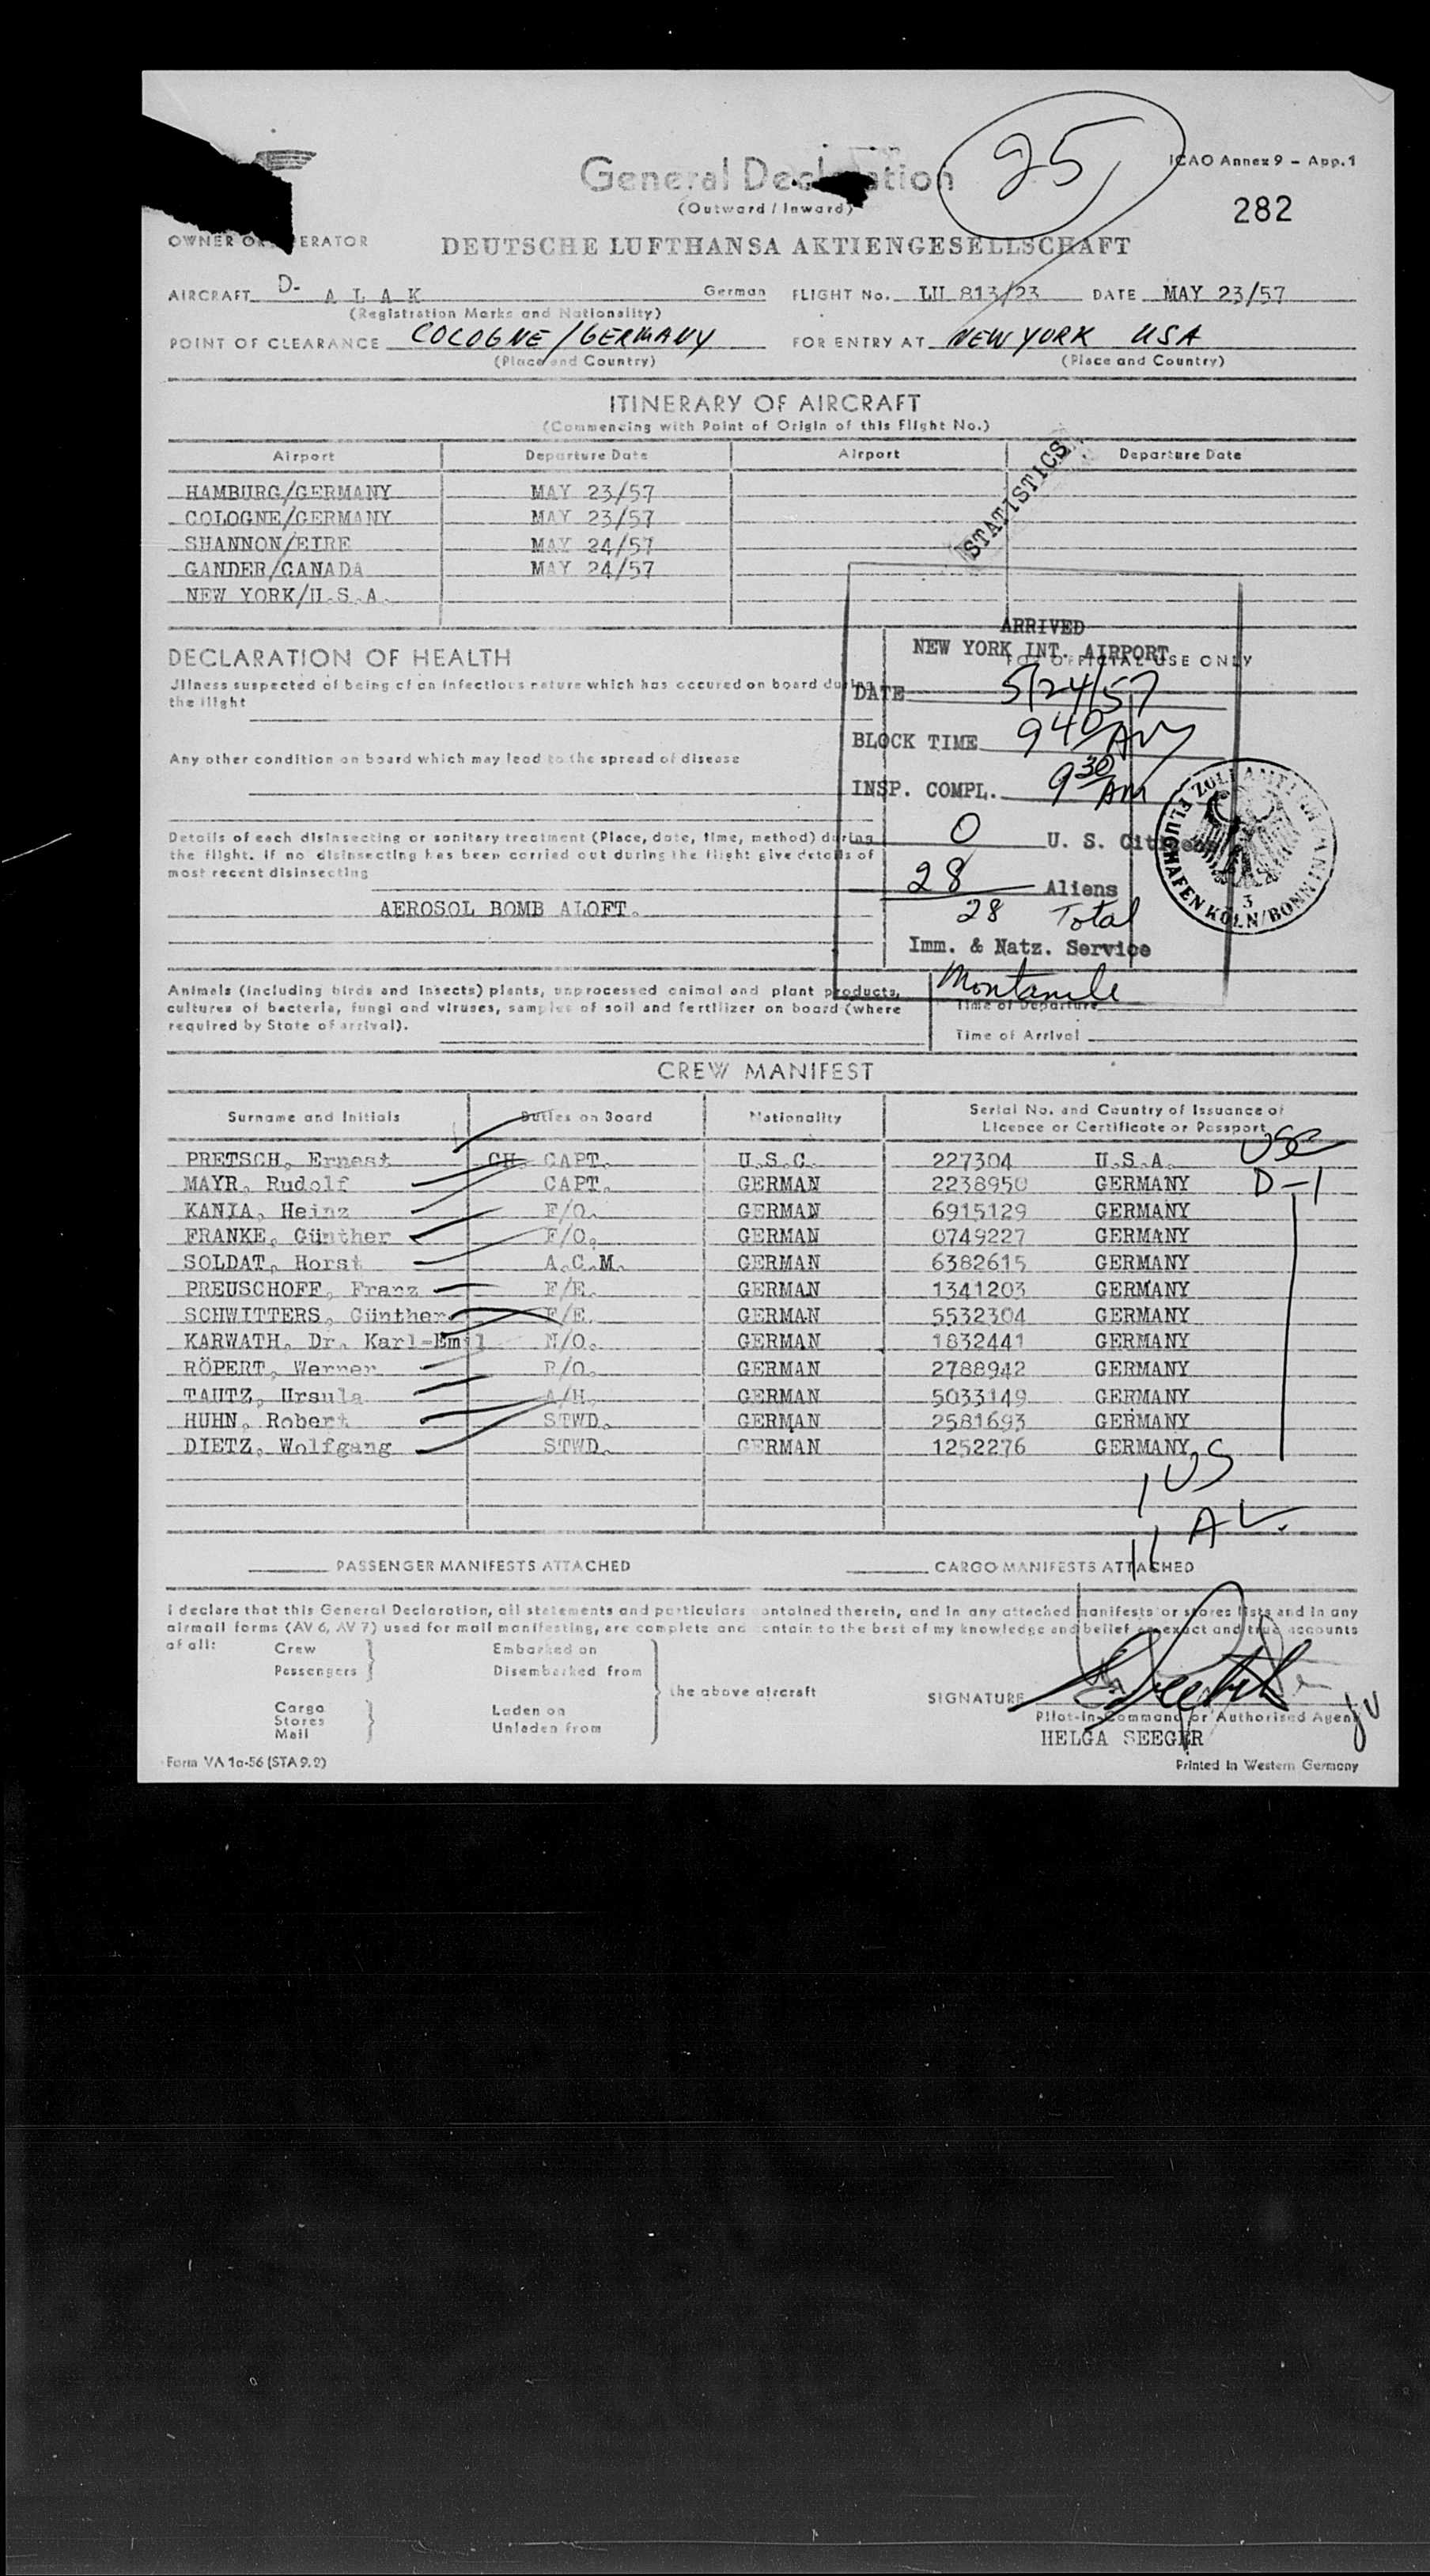 25
ICAO Annex 9 – App. 1
General Decl ation
(Outward / Inward)
282
OWNER OR ERATOR DEUTSCHE LUFTHANSA AKTIENGESELLSCHAFT
AIRCRAFT D- A L A K German FLIGHT No. LH 813/23 DATE MAY 23/57
(Registration Marks and Nationality)
POINT OF CLEARANCE COLOGNE/GERMANY FOR ENTRY AT NEW YORK USA
(Place and Country) (Place and Country)
ITINERARY OF AIRCRAFT
(Commencing with Point of Origin of this Flight No.)
Airport Departure Date Airport Departure Date
STATISTICS
HAMBURG/GERMANY MAY 23/57
COLOGNE/GERMANY MAY 23/57
SHANNON/EIRE MAY 24/57
GANDER/CANADA MAY 24/57
NEW YORK/U.S.A.
DECLARATION OF HEALTH
Illness suspected of being of an infectious nature which has occured on board during
the flight
Any other condition on board which may lead to the spread of disease
Details of each disinsecting or sanitary treatment (Place, date, time, method) during
the flight. If no disinsecting has been carried out during the flight give details of
most recent disinsecting
AEROSOL BOMB ALOFT.
FOR OFFICIAL USE ONLY
ARRIVED
NEW YORK INT. AIRPORT
DATE 5/24/57
BLOCK TIME 9 40 AM
INSP. COMPL. 9 30 AM
0 U. S. Citizens
28 Aliens
28 Total
Imm. & Natz. Service
ZOLLAMT
FLUGHAFEN KÖLN/BONN
3
Animals (including birds and insects) plants, unprocessed animal and plant products,
cultures of bacteria, fungi and viruses, samples of soil and fertilizer on board (where
required by State of arrival).
Time of Departure
Time of Arrival
CREW MANIFEST
Surname and Initials Duties on Board Nationality Serial No. and Country of Issuance of
Licence or Certificate or Passport
PRETSCH, Ernest CH. CAPT. U.S.C. 227304 U.S.A. USC
MAYR, Rudolf CAPT. GERMAN 2238950 GERMANY D-1
KANIA, Heinz F/O. GERMAN 6915129 GERMANY
FRANKE, Günther F/O. GERMAN 0749227 GERMANY
SOLDAT, Horst A.C.M. GERMAN 6382615 GERMANY
PREUSCHOFF, Franz F/E. GERMAN 1341203 GERMANY
SCHWITTERS, Günther F/E. GERMAN 5532304 GERMANY
KARWATH, Dr. Karl-Emil N/O. GERMAN 1832441 GERMANY
RÖPERT, Werner R/O. GERMAN 2788942 GERMANY
TAUTZ, Ursula A/H. GERMAN 5033149 GERMANY
HUHN, Robert STWD. GERMAN 2581693 GERMANY
DIETZ, Wolfgang STWD. GERMAN 1252276 GERMANY
1 US
11 AL.
PASSENGER MANIFESTS ATTACHED CARGO MANIFESTS ATTACHED
I declare that this General Declaration, all statements and particulars contained therein, and in any attached manifests or stores lists and in any
airmail forms (AV 6, AV 7) used for mail manifesting, are complete and contain to the best of my knowledge and belief exact and true accounts
of all: Crew Embarked on
Passengers Disembarked from
the above aircraft
Cargo Laden on
Stores
Mail Unladen from
SIGNATURE
Pilot-in-Command or Authorised Agent
HELGA SEEGER
Form VA 1a-56 (STA 9.2)
Printed in Western Germany